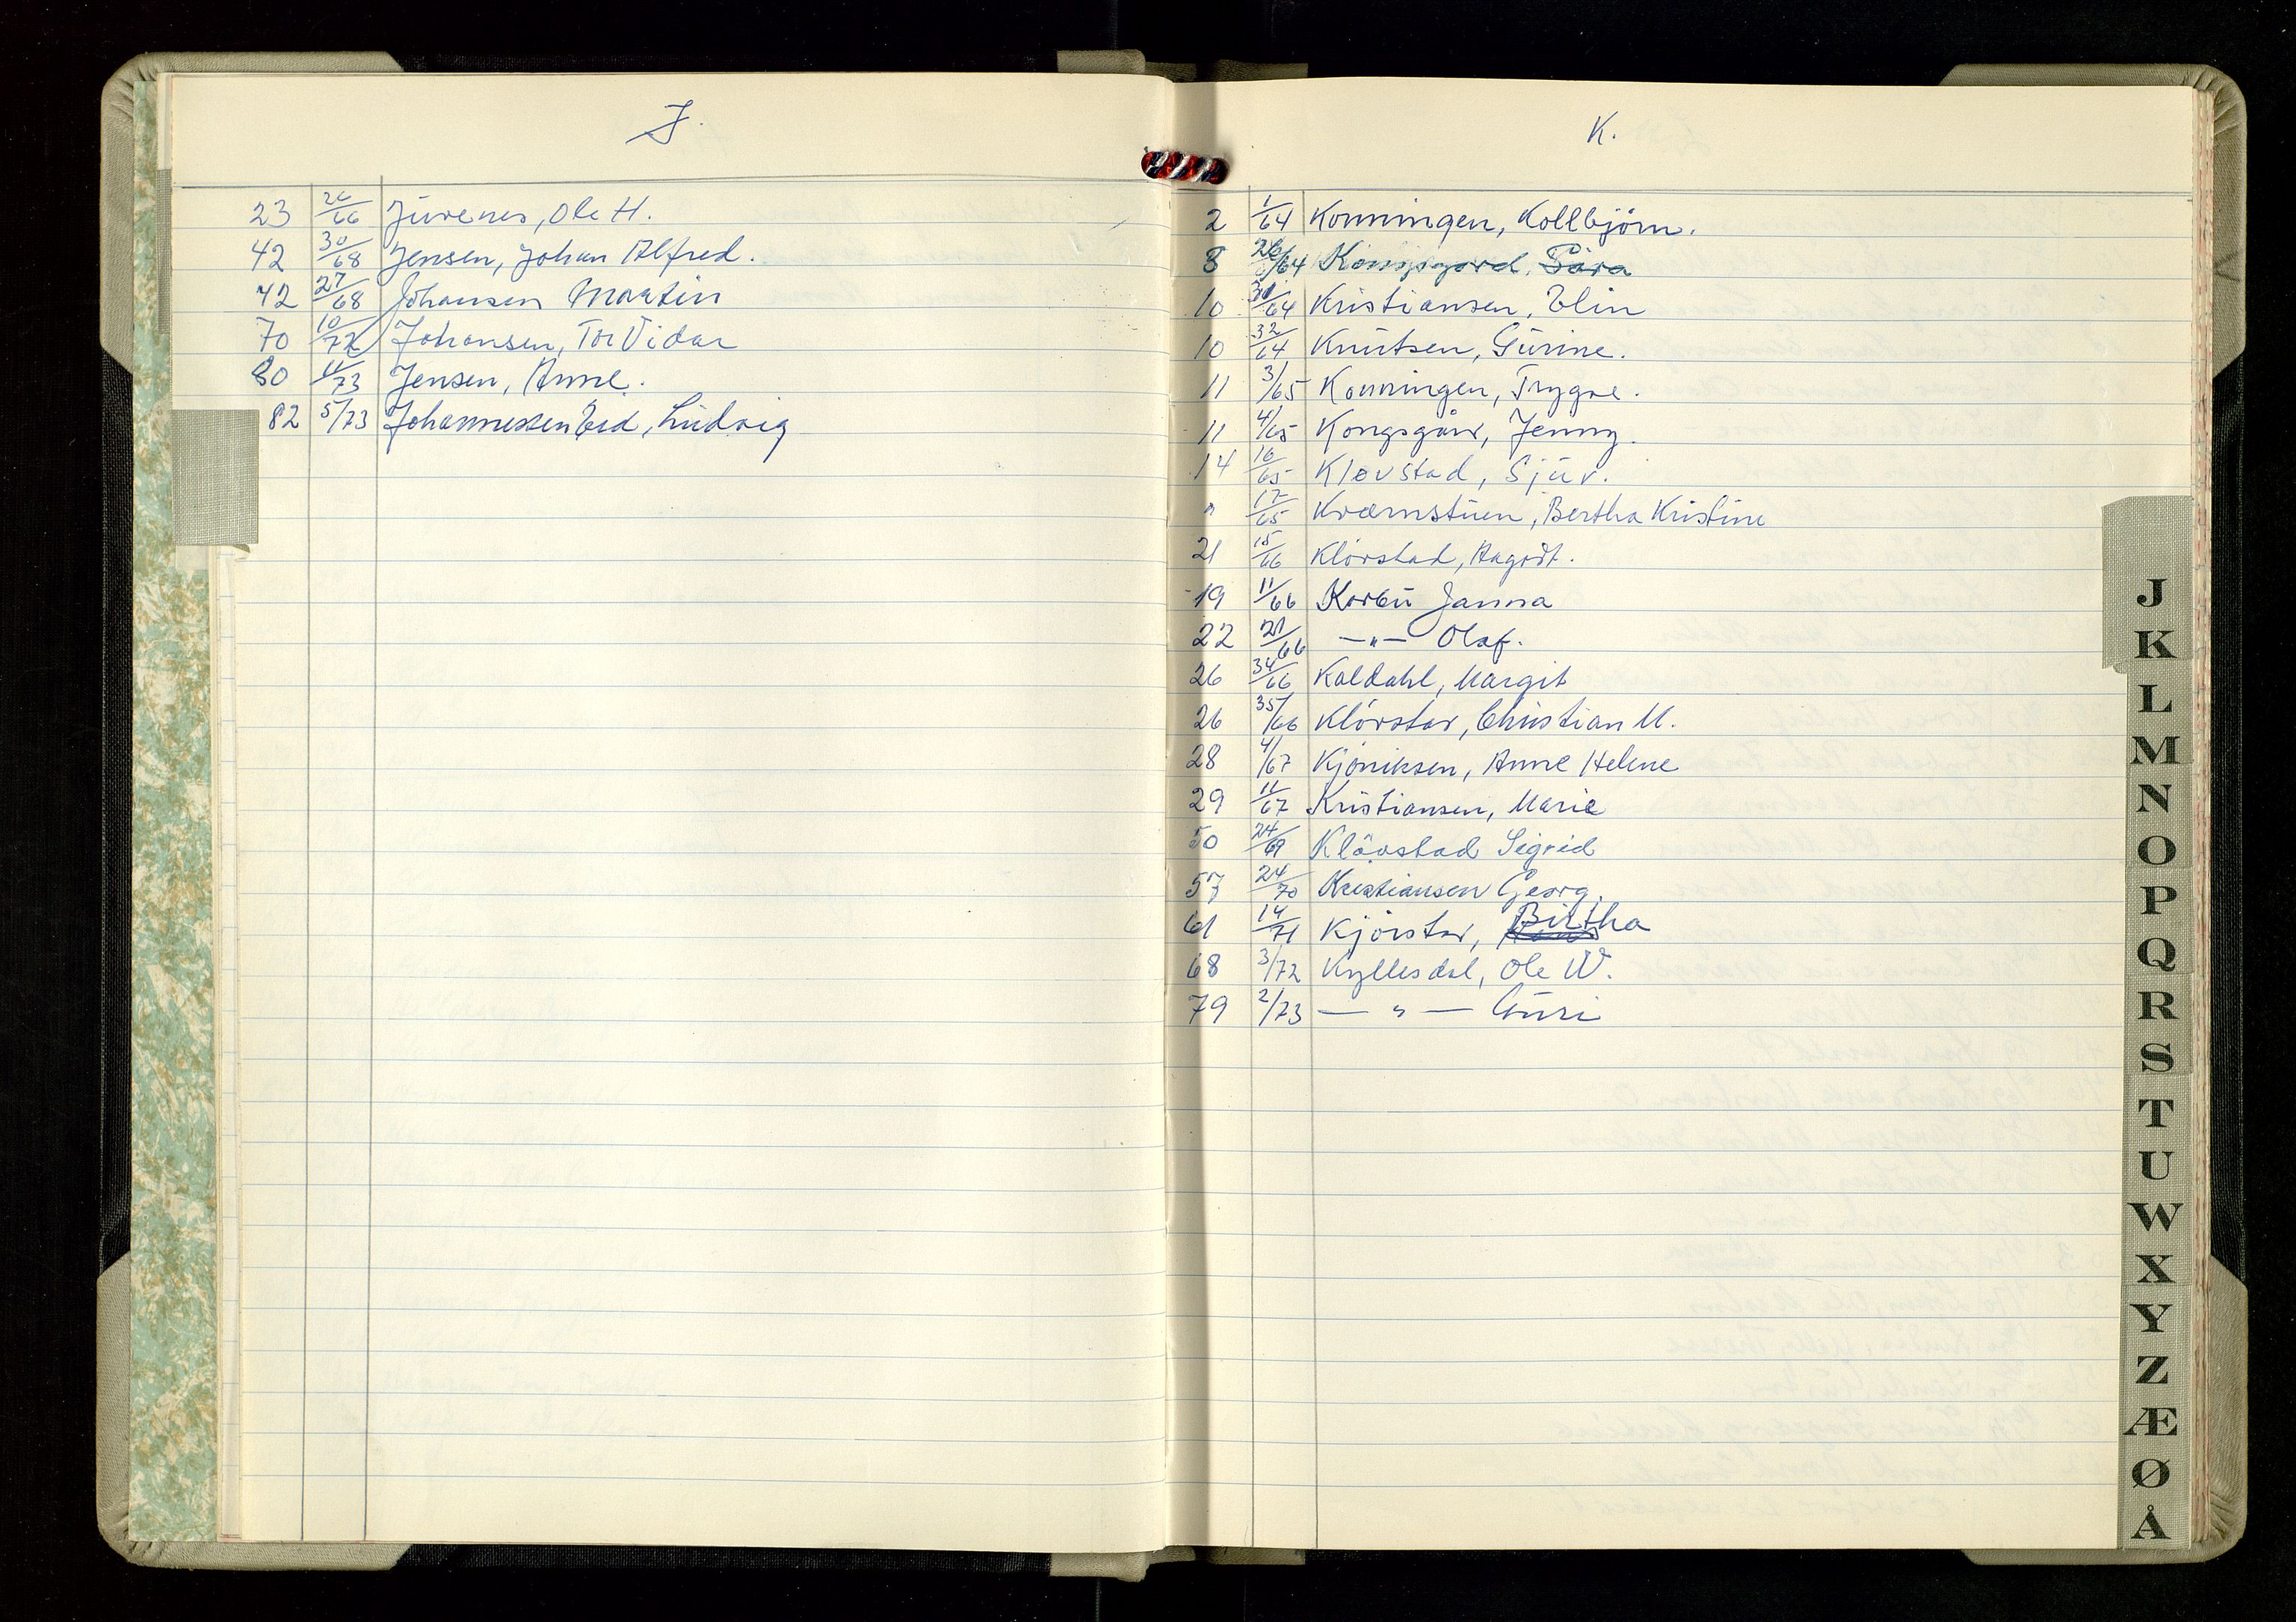 J.
23 26/66 Juvenes, Ole H.
42 30/68 Jensen, Johan Alfred.
42 27/68 Johansen Martin
70 10/72 Johansen, Tor Vidar
80 11/73 Jensen, Anne.
82 5/73 Johannessen Eid, Ludvig
K.
2 1/64 Konningen, Kollbjörn.
8 26/64 Kongsgård, Sára
10 30/64 Kristiansen, Elin
10 32/64 Knutsen, Gurine.
11 3/65 Konningen, Trygve.
11 4/65 Kongsgård, Jenny.
14 16/65 Kløvstad, Sjur.
" 17/65 Kværnstuen, Bertha Kristine
21 15/66 Klövstad, Aagodt.
19 11/66 Korbu Janna
22 21/66 —"— Olaf.
26 34/66 Kaldahl, Margit
26 35/66 Klövstad, Christian M.
28 4/67 Kjöniksen, Anne Helene
29 11/67 Kristiansen, Marie
50 24/69 Klövstad Sigrid
57 24/70 Kristiansen Georg.
61 14/71 Kjörstad, Birtha
68 3/72 Kyllesdal, Ole W.
79 2/73 — " — Guri
J
K
L
M
N
O
P
Q
R
S
T
U
W
X
Y
Z
Æ
Ø
Å